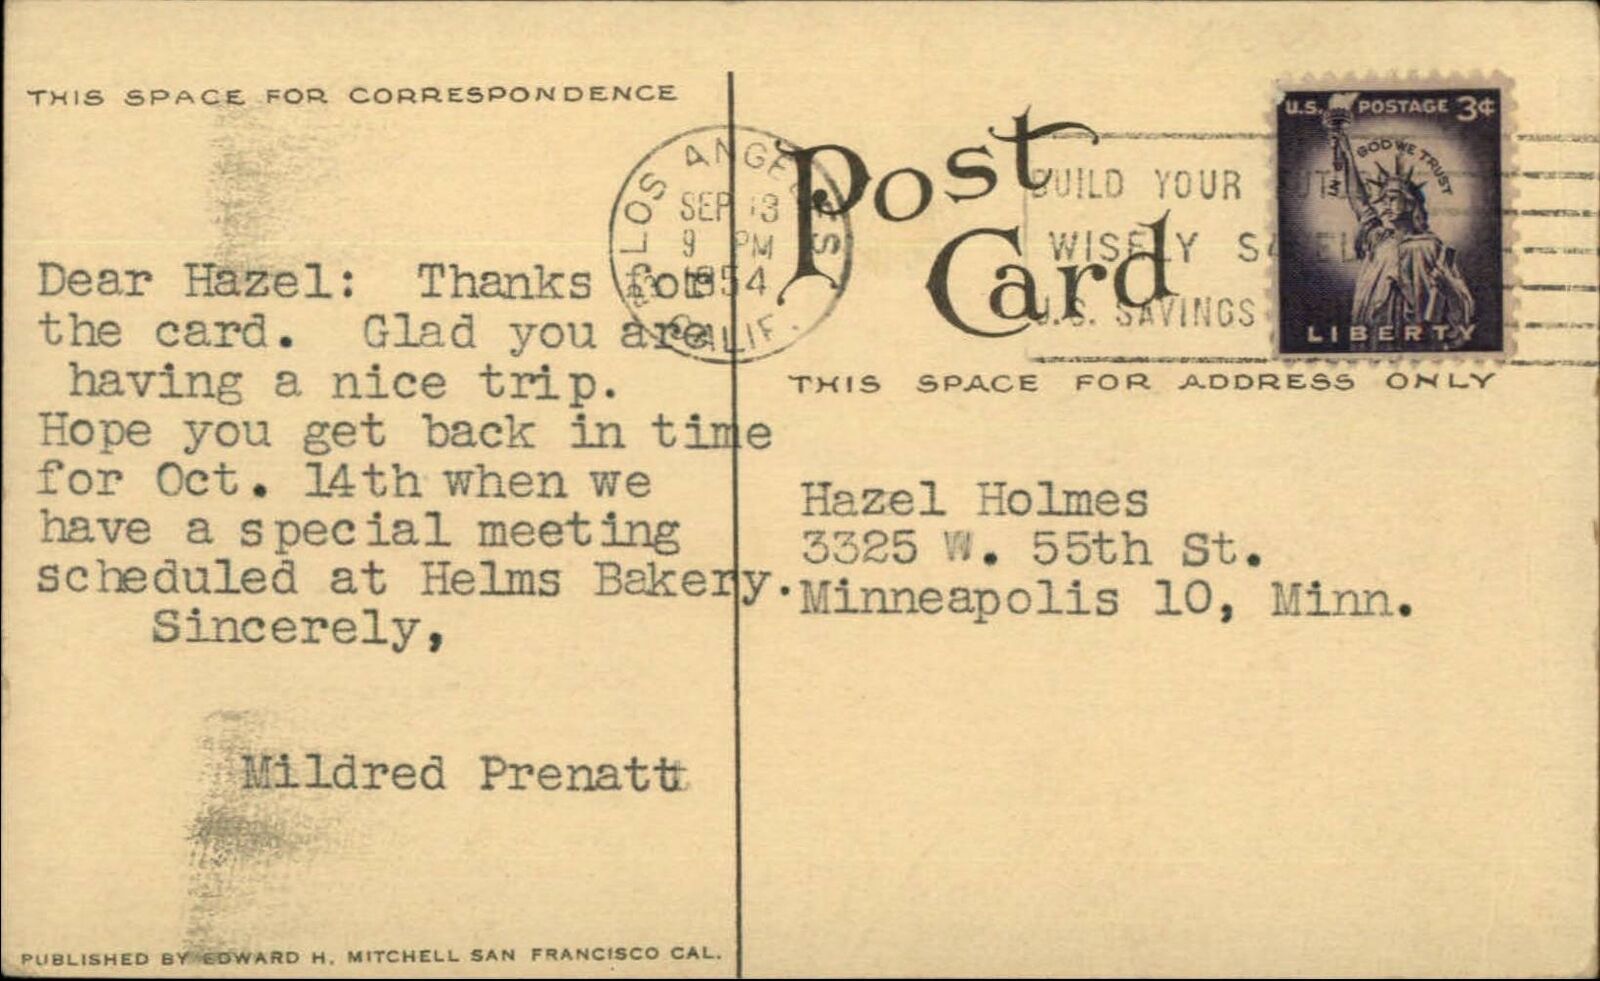 THIS SPACE FOR CORRESPONDENCE
Dear Hazel: Thanks for
the card. Glad you are
having a nice trip.
Hope you get back in time
for Oct. 14th when we
have a special meeting
scheduled at Helms Bakery.
Sincerely,
Mildred Prenatt
PUBLISHED BY EDWARD H. MITCHELL SAN FRANCISCO CAL.
LOS ANGELES
SEP 13
9 PM
1954
CALIF.
Post
Card
BUILD YOUR
WISELY
U.S. SAVINGS
U.S. POSTAGE 3¢
IN GOD WE TRUST
LIBERTY
THIS SPACE FOR ADDRESS ONLY
Hazel Holmes
3325 W. 55th St.
Minneapolis 10, Minn.